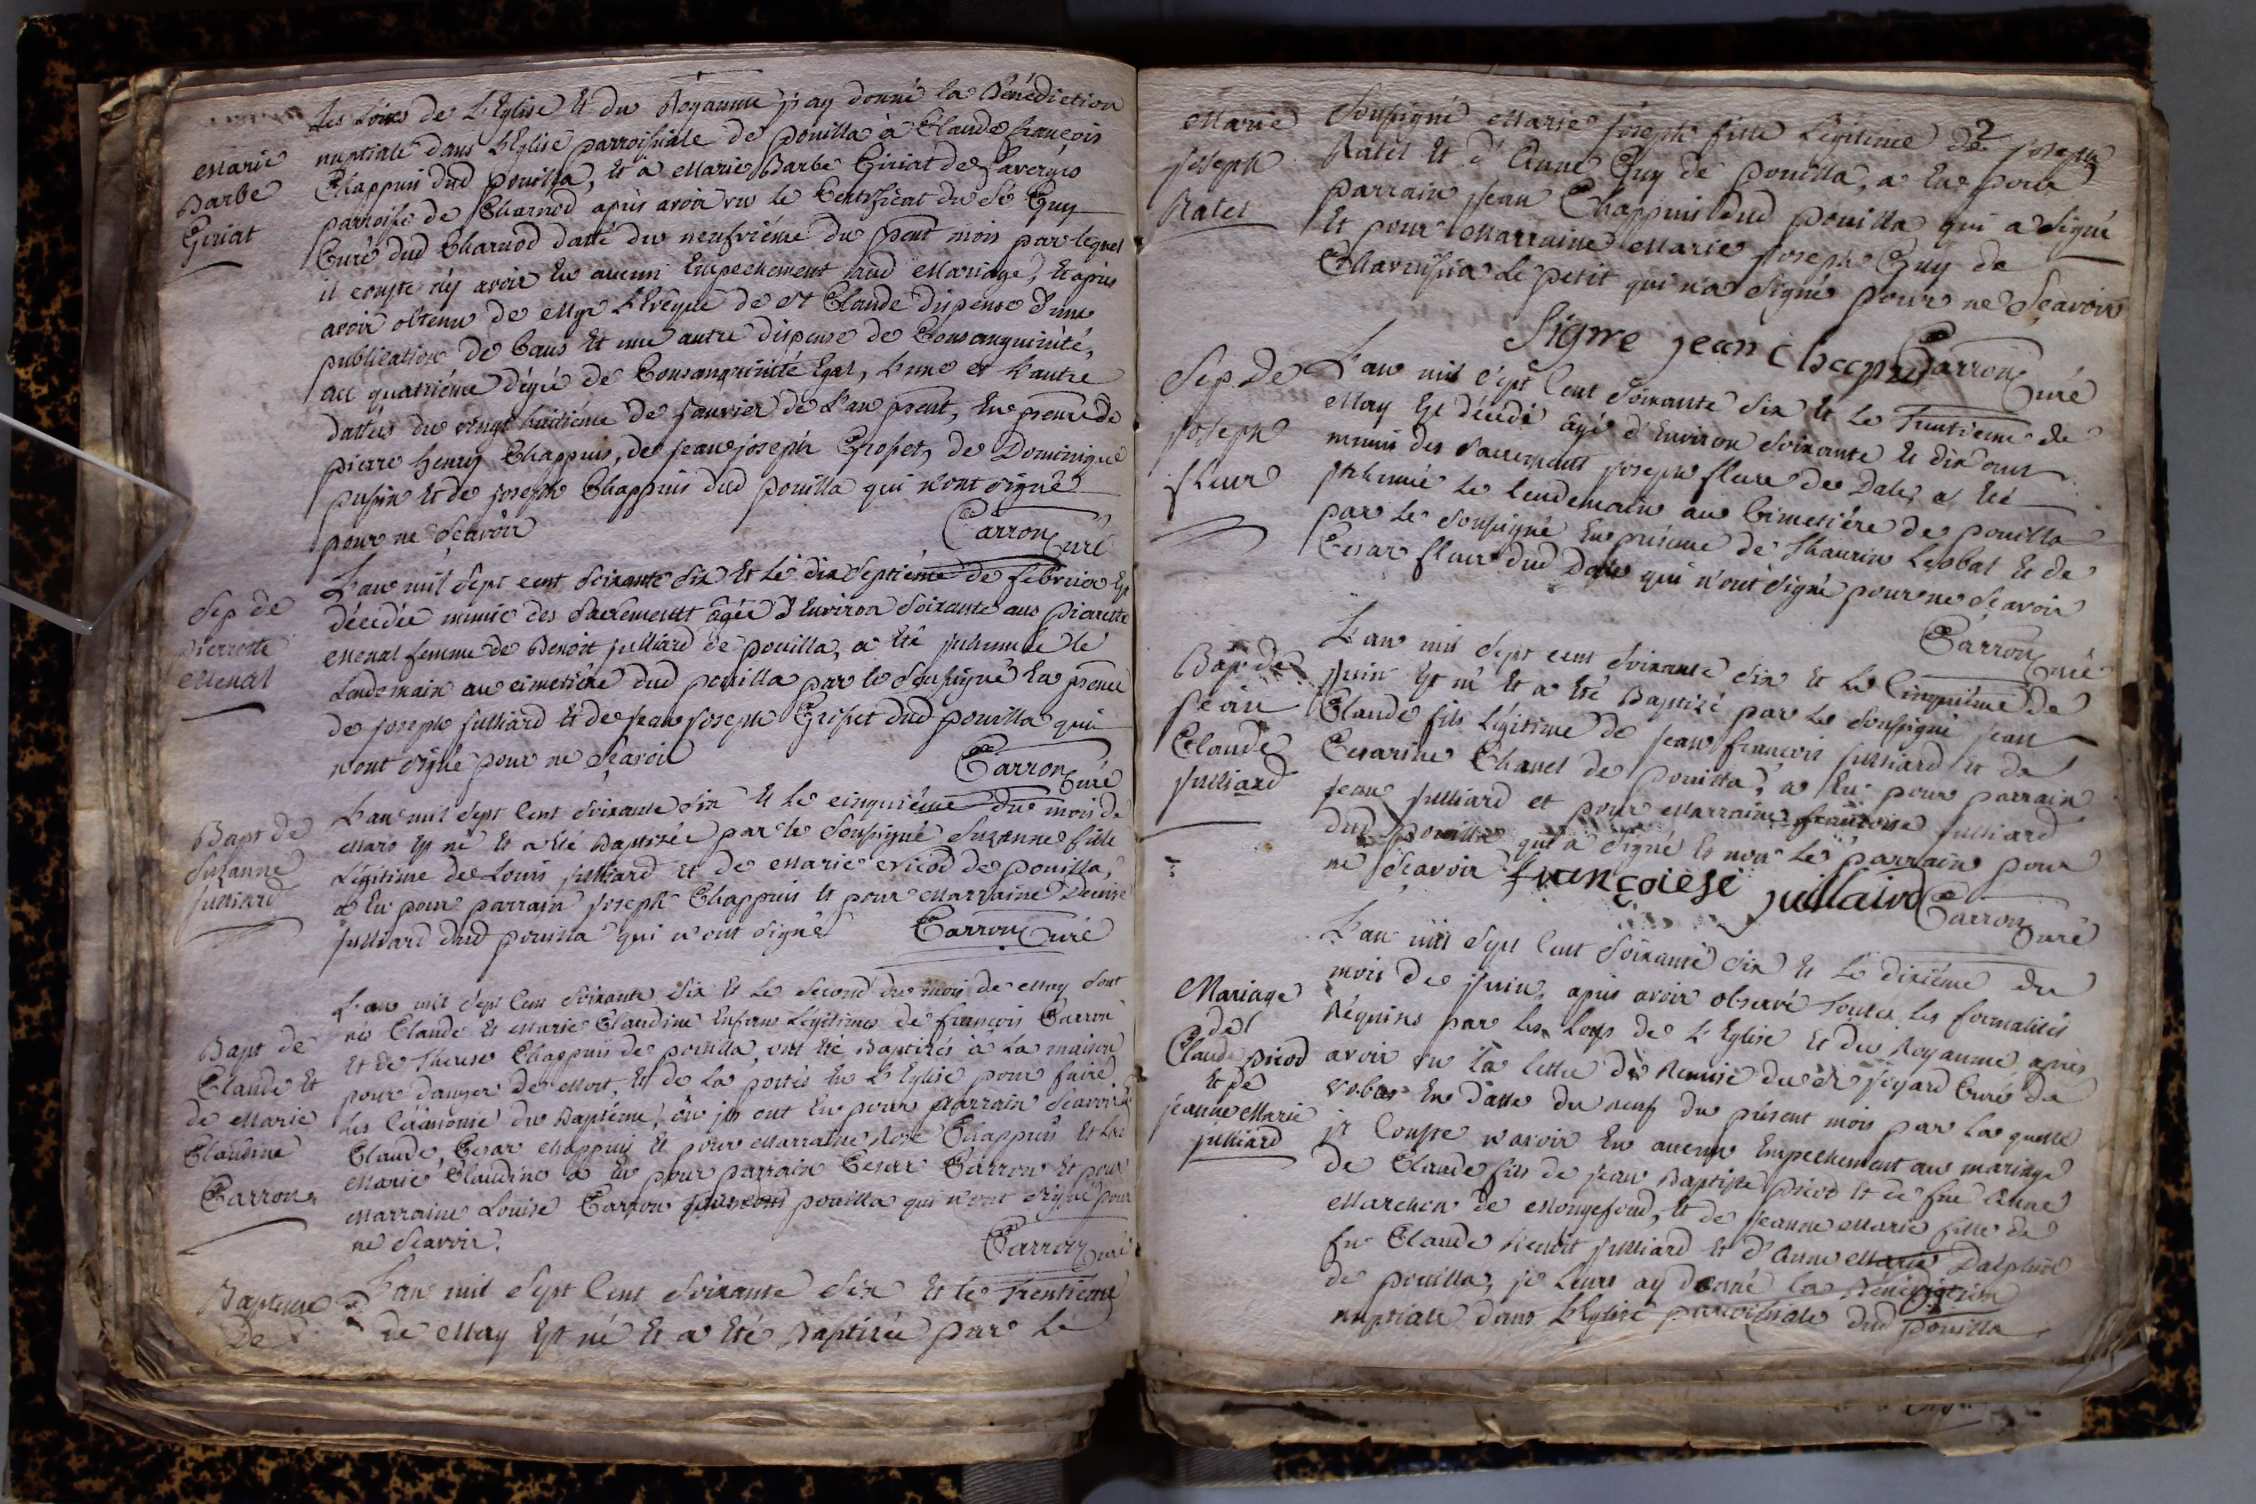 Les Loix de L'Eglise Et du Royaume j'ay donné la Bénédiction
nuptiale dans L'Eglise parroissiale de pouilla à Claude françois
Marie
Barbe
Giriat
Chappuis dud pouilla, Et a Marie Barbe Giriat de
parroisse de Charnod après avoir vu le Certificat du Sr Guy
Curé dud Charnod datté du neufvième du pent mois par lequel
il conste n'y avoir Eu aucun Empechement aud Mariage, Et après
avoir obtenu de Mgr L'Evêque de St Claude dispense d'une
publication de bans Et une autre dispense de Consanguinité,
au quatrième dégré de Consanguinité Egal, L'une et L'autre
dattés du vingt huitième de janvier de L'an pent, En pence de
pierre henry Chappuis, de jean joseph de Dominique
Et de joseph Chappuis dud pouilla qui n'ont signé
pour ne sçavoir
Carron Curé
Sep de
pierrotte
Menal
L'an mil sept cent soixante six Et le dix septième de febvrier Est
décédée munie des sacrements âgée d'Environ soixante ans pierrotte
Menal femme de Benoit julliard de pouilla, a Eté inhumée le
Lendemain au cimetière dud pouilla par le soussigné En pence
de joseph julliard Et de jean joseph dud pouilla qui
n'ont signé pour ne sçavoir
Carron Curé
Bapt de
Suzanne
julliard
L'an mil sept Cent soixante six Et le cinquième du mois de
Mars Est né Et a Eté Baptizée par le soussigné Suzanne fille
Légitime de Louis julliard Et de Marie de pouilla,
a Eu pour parrain joseph Chappuis Et pour Marraine Denise
julliard dud pouilla qui n'ont signé
Carron Curé
Bapt de
Claude Et
de Marie
Claudine
Carron
L'an mil sept Cent soixante six Et le second du mois de May sont
nés Claude Et Marie Claudine Enfans Légitimes de françois Carron
Et de Therese Chappuis de pouilla, ont Eté Baptizés à La maison
pour danger de Mort, Et de La portés En L'Eglise pour faire
Les Cérémonie du Baptême, où ils ont Eu pour parrain sçavoir
Claude, Cesar Chappuis Et pour Marraine Rose Chappuis Et La
Marie Claudine a Eu pour parrain Cesar Carron Et pour
Marraine Louise Carron pouilla qui n'ont signé pour
ne sçavoir.
Carron Curé
Bapteme
De
L'an mil sept Cent soixante six Et le trentième
de May Est né Et a Eté Baptizée par Le
2
Marie
joseph
Ratel
soussigné Marie joseph fille Légitime de joseph
Ratel Et d'Anne Guy de pouilla, a Eu pour
parrain jean Chappuis dud pouilla qui a signé
Et pour Marraine Marie joseph Guy de
Le petit qui n'a signé pour ne sçavoir
Signe jean Chappui
Carron Curé
Sep. De
joseph
fleur
L'an mil sept Cent soixante six Et le trentième de
May Est décédé âgé d'Environ soixante Et dix ans
munis des sacrements joseph fleur de Dale, a Eté
inhumé le lendemain au Cimetière de pouilla
par le soussigné En présence de Et de
Cesar fleur dud Dale qui n'ont signé pour ne sçavoir
Carron Curé
Bap. de
jean
Claude
julliard
L'an mil sept cent soixante six Et le Cinquième de
juin Est né Et a Eté Baptizé par le soussigné jean
Claude fils Légitime de jean françois julliard Et de
Cesarine Chanel de pouilla, a Eu pour parrain
jean julliard et pour Marraine françoise julliard
dud pouilla qui a signé Et non Le parrain pour
ne sçavoir
françoiese juillaird
Carron Curé
Mariage
de
Claude picod
Et de
jeanne Marie
julliard
L'an mil sept Cent soixante six Et le dixième du
mois de juin, après avoir observé toutes les formalités
Réquises par les Loys de L'Eglise Et du Royaume, après
avoir vu la lettre de Remise du Sr Curé de
En datte du neuf du présent mois par la quelle
il Conste n'avoir Eu aucun Empechement au mariage
de Claude fils de jean Baptiste picod Et de fue Anne
Marchon de Mongefond, Et de jeanne Marie fille de
fu Claude Benoit julliard Et d'Anne Marie Dalphin
de pouilla, je Leurs ay donné la Bénédiction
nuptiale dans L'Eglise parroissiale dud pouilla